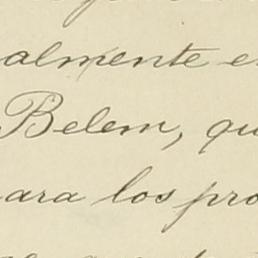 almente e
Belem, qu
ara los pro